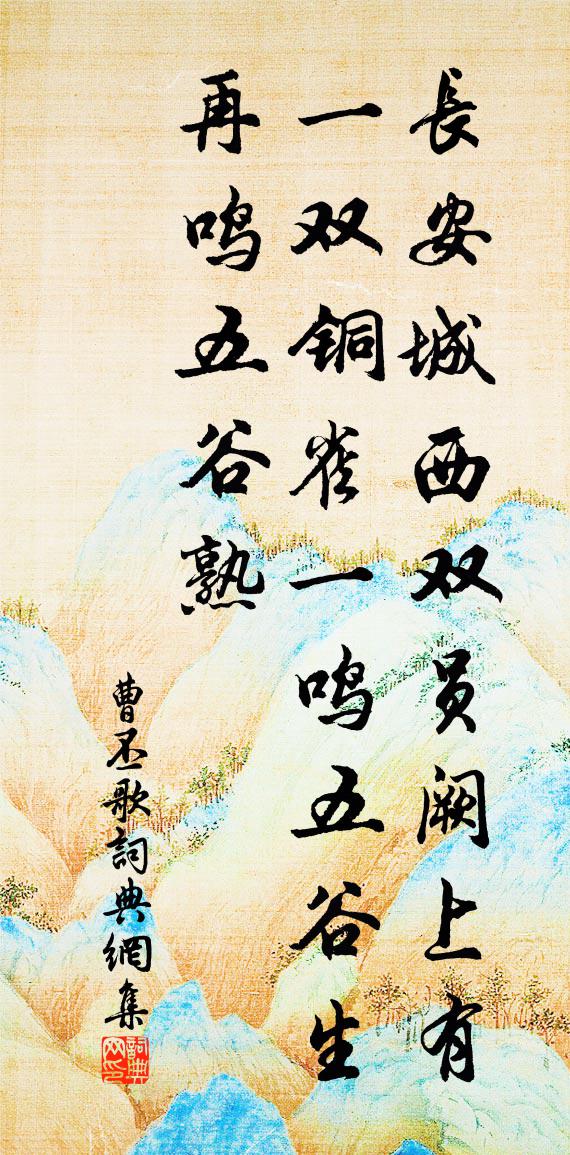 長安城西双员阙上有
一双铜雀一鸣五谷生
再鸣五谷熟
曹丕歌詞典網集
詞典
网印